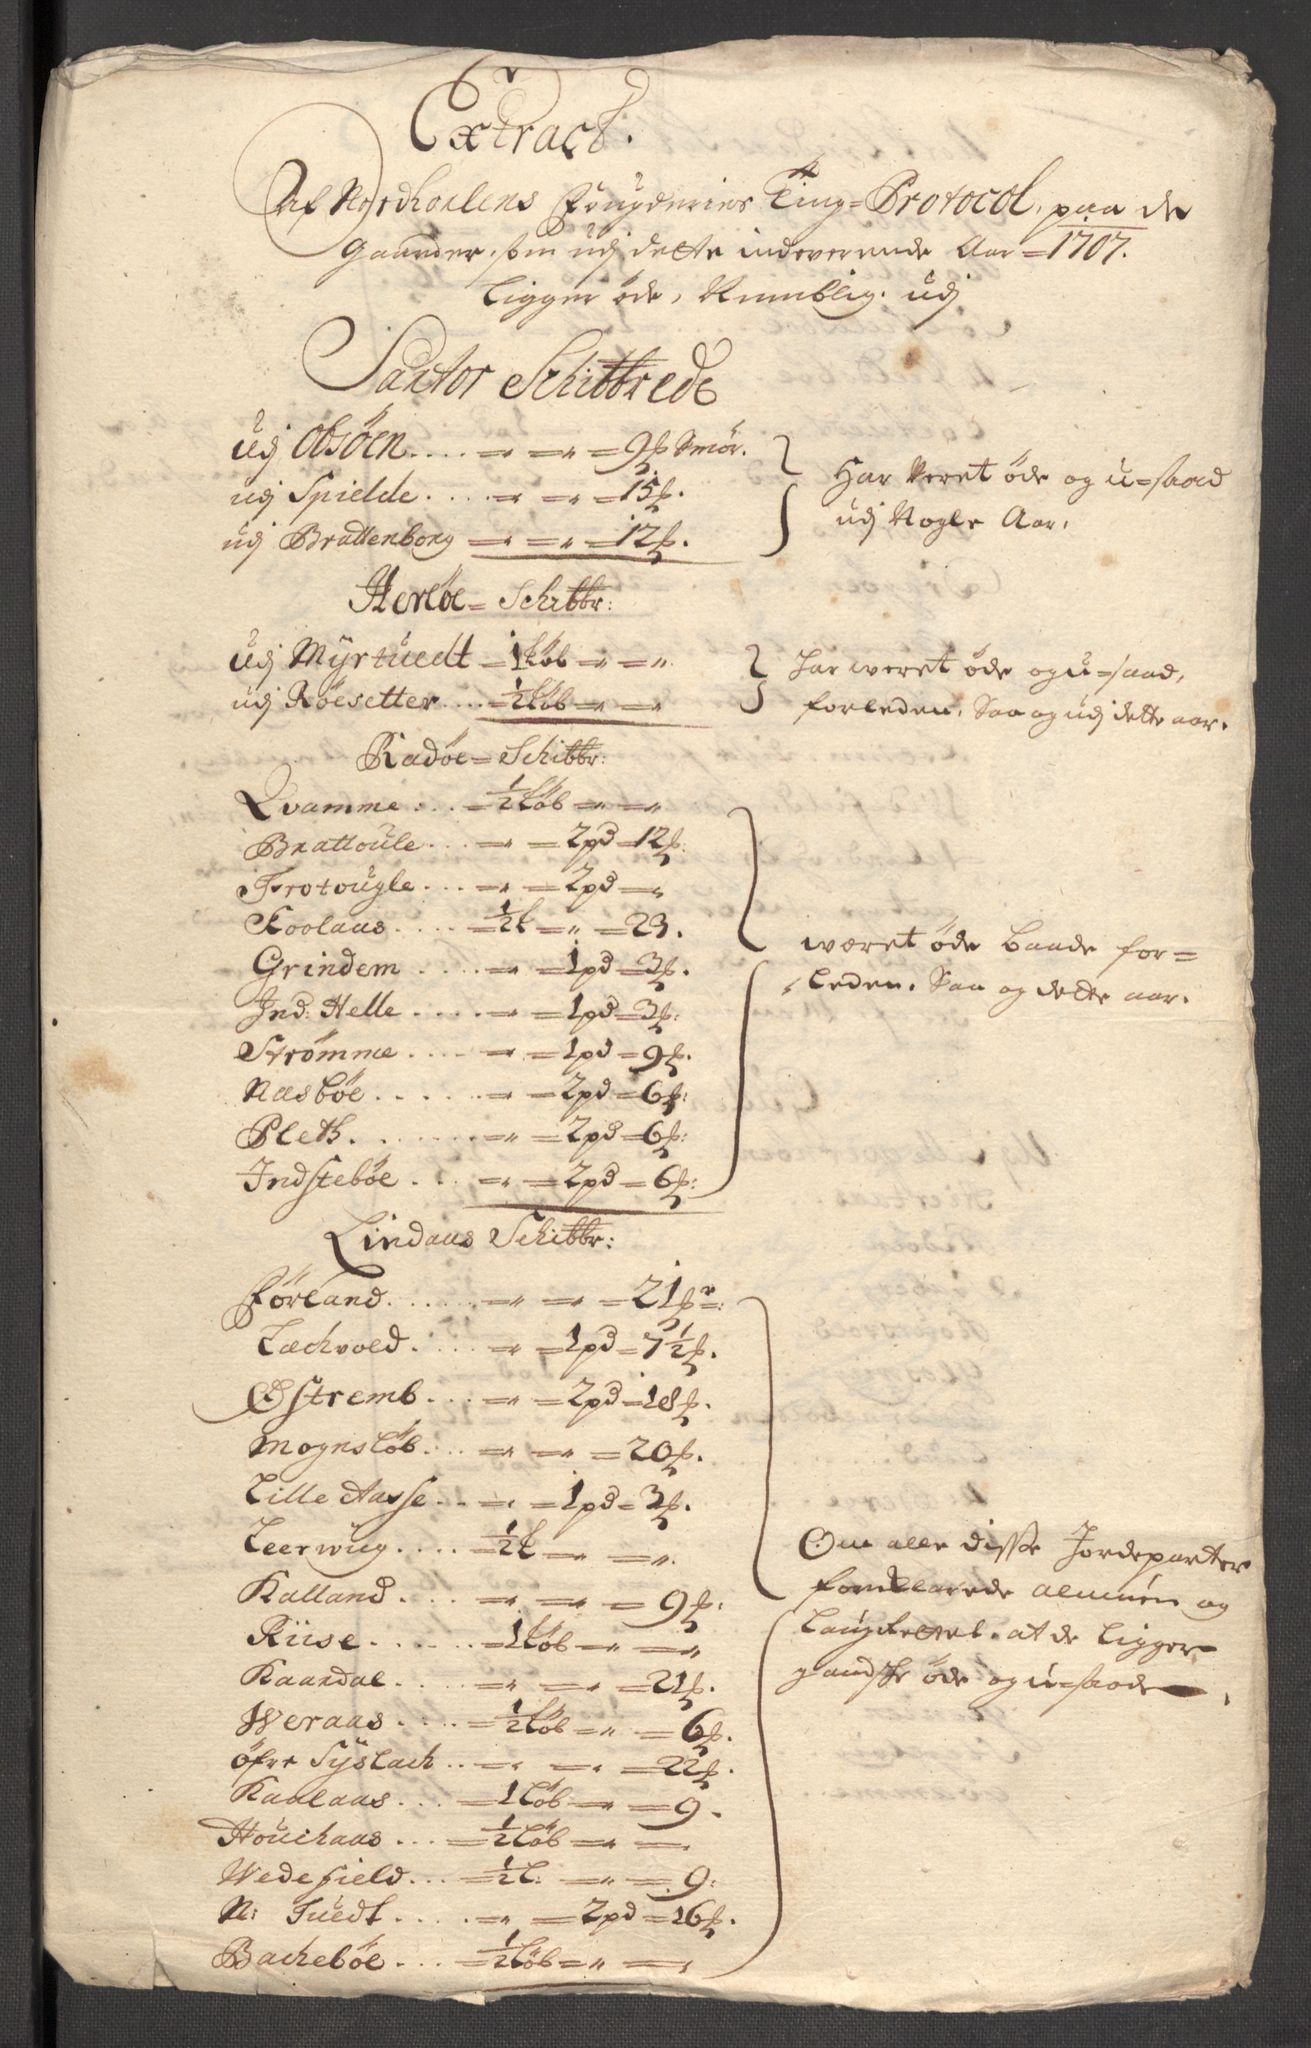 Extract.
Af Nordhorlens Fougderies Ting=Protocol, paa de
Gaarder, som udj dette indeverende Aar=1707.
Ligger öde, Nemblig. udj
Sartor Schibbrede
Udj Obsöen.... =" =" =9ß Smör.
udj Spielde..... =" =" =15ß.
udj Brattenborg =" =" =12ß.
Har Veret öde og u=saaed
udj Nogle Aar.
Herlöe= Schibbr:
Udj Myrtuedt =1Löb =" ="
udj Röesetter.... =½Löb =" ="
har weret öde og u=saad,
forleden, Saa og udj dette aar.
Radöe= Schibbr:
Qvamme.... =½Löb =" ="
Brattoule.... =" =2pd =12ß:
Trotougle.... =" =2pd ="
Koolaas..... =½L =" =23.
Grindem.... =" =1pd =3ß.
Ind: Helle..... =" =1pd =3ß:
Strömme.... =" =1pd =9ß.
Nasböe..... =" =2pd =6ß:
Pleth....... =" =2pd =6ß:
Indsteböe... =" =2pd =6ß:
wæret öde baade for=
leden. Saa og dette aar.
Lindaas Schibbr:
Förland...... =" =" =21ßr=:
Læchvold..... =" =1pd =7½ß.
Østremb.... =" =2pd =18ß.
Mognslöb.... =" =" =20ß.
Lille Aasse.... =" =1pd =3ß.
Leerwiig.... =½L =" ="
Kalland..... =" =" =9ß:
Riise...... =1Löb =" ="
Kaardal..... =" =" =21ß.
Weraas.... =½Löb =" =6ß.
öfre Syslach.. =" =" =22ß.
Kaalaas.... =1Löb =" =9.
Houchaas.... =½Löb =" =
Wedefield... =½L: =" =9:
N: Tuedt..... =" =2pd =16ß.
Bacheböe.... =½Löb =" ="
Om alle disse Jordeparter
forklarede almuen og
Laugrettet. at de Ligger
gandske öde og u=saaede.